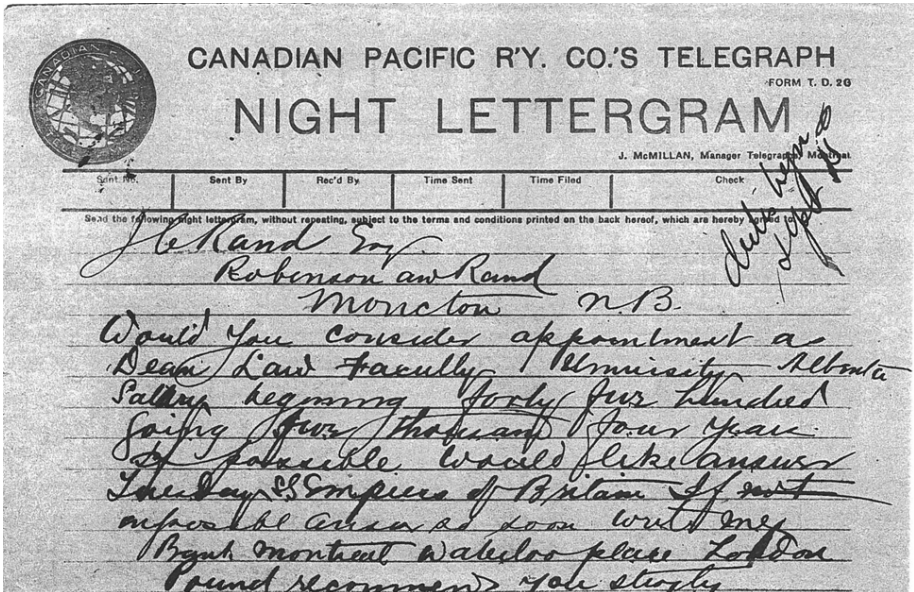 CANADIAN PACIFIC R'Y. CO.'S TELEGRAPH
FORM T. D. 2G
NIGHT LETTERGRAM
J. McMILLAN, Manager Telegraphs, Montreal.
Sent No. Sent By Rec'd By Time Sent Time Filed Check
Send the following night lettergram, without repeating, subject to the terms and conditions printed on the back hereof, which are hereby agreed to
Rand Esq
Robinson Rand
Moncton N.B.
Would you consider appointment as
Dean Law Faculty University Alberta
Salary beginning forty five hundred
going five thousand four years
If possible would like answer
Tuesday SS Empress of Britain If not
answer so soon write me
Bank Montreal Waterloo place London
Pound recommends you strongly